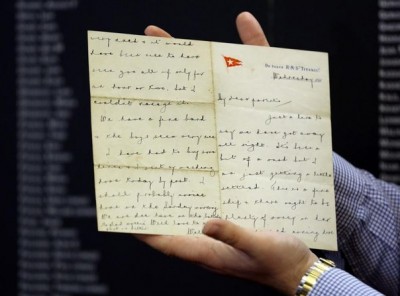 On board R.M.S. "Titanic".
Wednesday
My dear parents,
Just a line to
say we have got away
all right. It's been a
bit of a rush but I
am just getting a little
settled. This is a fine
ship & there ought to be
plenty of money on her
very much & it would
have been nice to have
seen you all if only for
an hour or two, but I
couldn't manage it.
We have a fine band
& the boys seem very nice
I have had to buy some
linen & I sent my washing
home today by post. I
shall probably arrive
home on the Sunday morning
We are due here on the